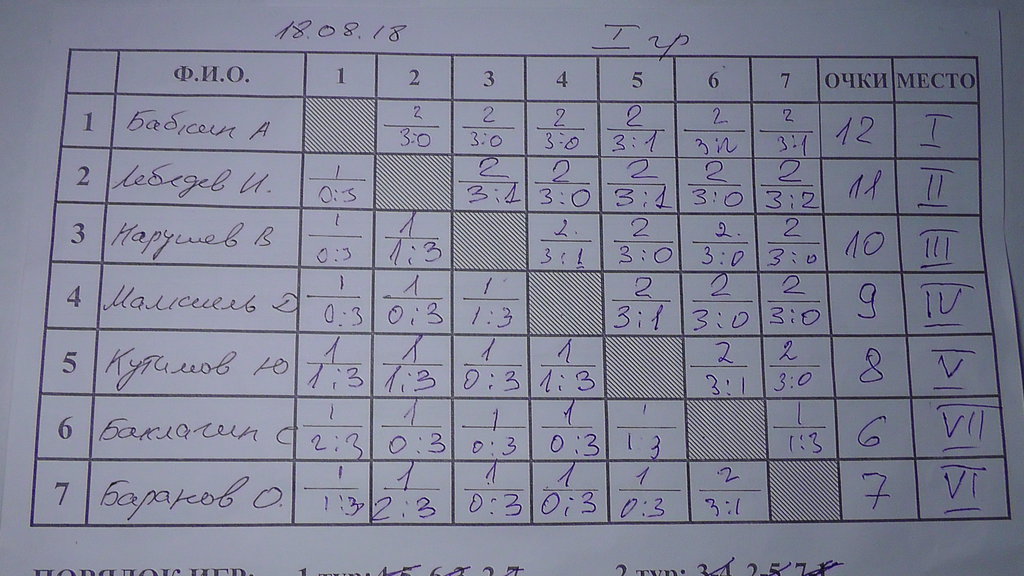 18.08.18 I гр
Ф.И.О. 1 2 3 4 5 6 7 ОЧКИ МЕСТО
1 Бабкин А 2 3:0 2 3:0 2 3:0 2 3:1 2 3:2 2 3:1 12 I
2 Лебедев И. 1 0:3 2 3:1 2 3:0 2 3:1 2 3:0 2 3:2 11 II
3 Нарушев В 1 0:3 1 1:3 2 3:1 2 3:0 2 3:0 2 3:0 10 III
4 1 0:3 1 0:3 1 1:3 2 3:1 2 3:0 2 3:0 9 IV
5 Кутимов Ю 1 1:3 1 1:3 1 0:3 1 1:3 2 3:1 2 3:0 8 V
6 Баклагин С 1 2:3 1 0:3 1 0:3 1 0:3 1 1:3 1 1:3 6 VII
7 Баранов О. 1 1:3 1 2:3 1 0:3 1 0:3 1 0:3 2 3:1 7 VI
ПОРЯДОК ИГР: 1 тур: 2 тур: